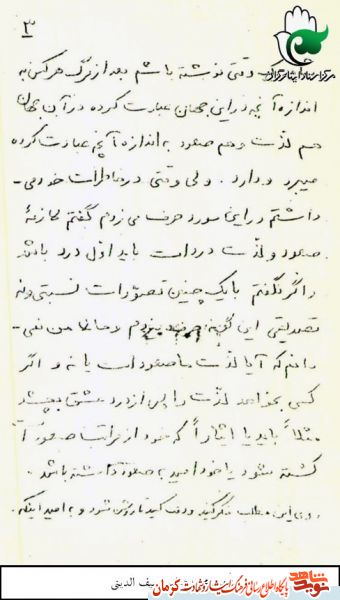 ۳
وقتی نوشته باشم بعد از مرگ هرکس به
اندازه آنچه در این جهان عبادت کرده در آن جهان
هم لذت و هم صعود به اندازه آنچه عبادت کرده
میبرد و دارد. ولی وقتی در خاطرات خود می-
داشتم در این مورد حرف می‌زدم گفتم لازمهٔ
صعود و لذت درد است باید اول درد باشد
و اگر نگفتم با یک چنین تصورات نسبتی و نه
تصدیقی این گونه من نمی-
دانم که آیا لذت ما صعود است یا نه و اگر
کسی بخواهد لذت را پس از درد عشق بچشد
مثلاً باید یا ایثاراً که خود از مراتب صعود
کشته شود یا خود امید به صعود داشته باشد.
روی این مطلب فکر کنید و دقت کنید تا روشن شود و به امید اینکه.
مرکز اسناد ایثارگران
نوید شاهد
پایگاه اطلاع رسانی فرهنگ ایثار و شهادت کرمان
سیف الدینی